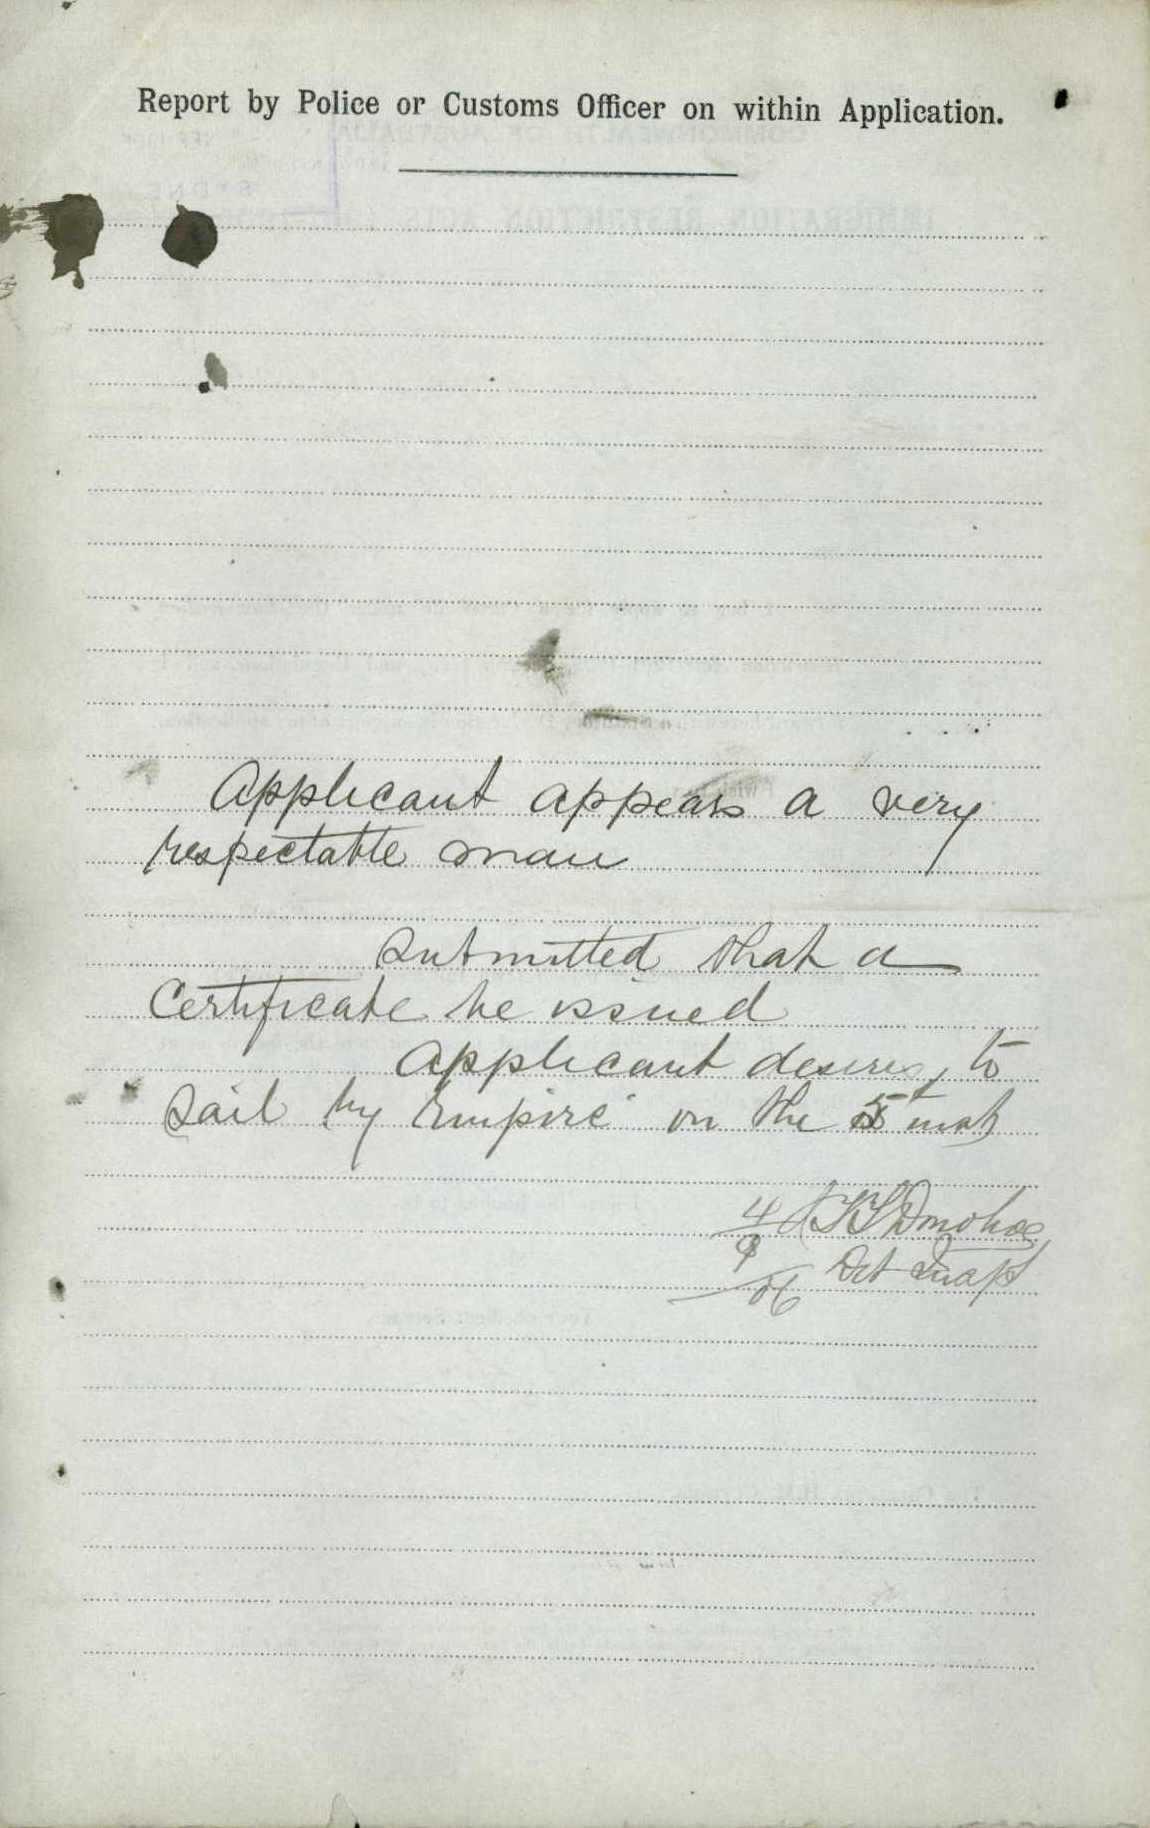 Report by Police or Customs Officer on within Application.
Applicant appears a very
respectable man
Submitted that a
Certificate be issued
Applicant desires to
Sail by Empire on the 5th inst
4 Donohoe
9 Det Insp
06